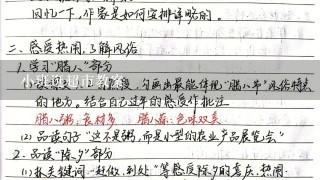 回忆一下，作家是如何安排详略的。
二、感受热闹，了解风俗
1.学习“腊八”部分
小班逛超市教案
勾画出最能体现“腊八节”风俗特点
的地方。结合自己过年的感受作批注
腊八粥：食材多 腊八蒜：色味双美
(2)品读句子“这不是粥，而是小型的农业产品展览会”
2.品读“除夕”部分
(1)抓关键词“赶做、到处”等感受除夕的喜庆、热闹.